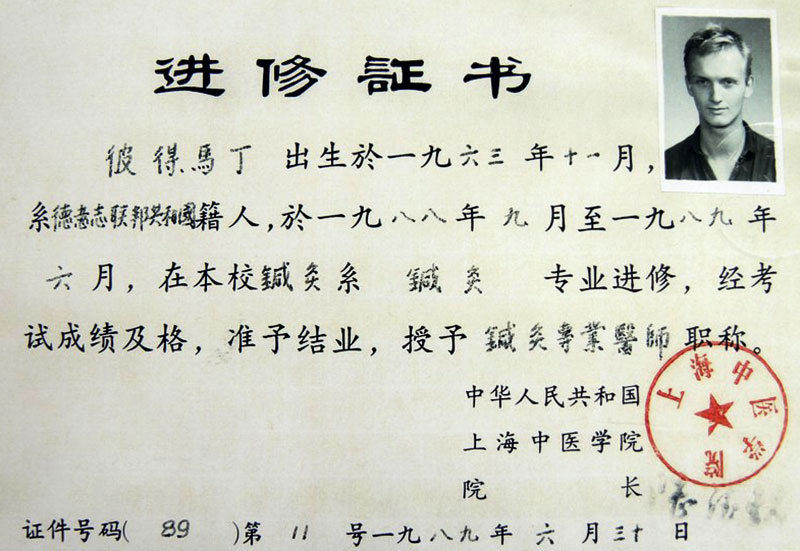 进修証书
彼得馬丁 出生於一九六三年十一月，
系德意志联邦共和國籍人，於一九八八年九月至一九八九年
六月，在本校鍼灸系 鍼灸 专业进修，经考
试成绩及格，准予结业，授予 鍼灸專業醫師 职称。
中华人民共和国
上海中医学院
院 长
上海中医学院
证件号码( 89 )第 11 号一九八九年 六 月三十日